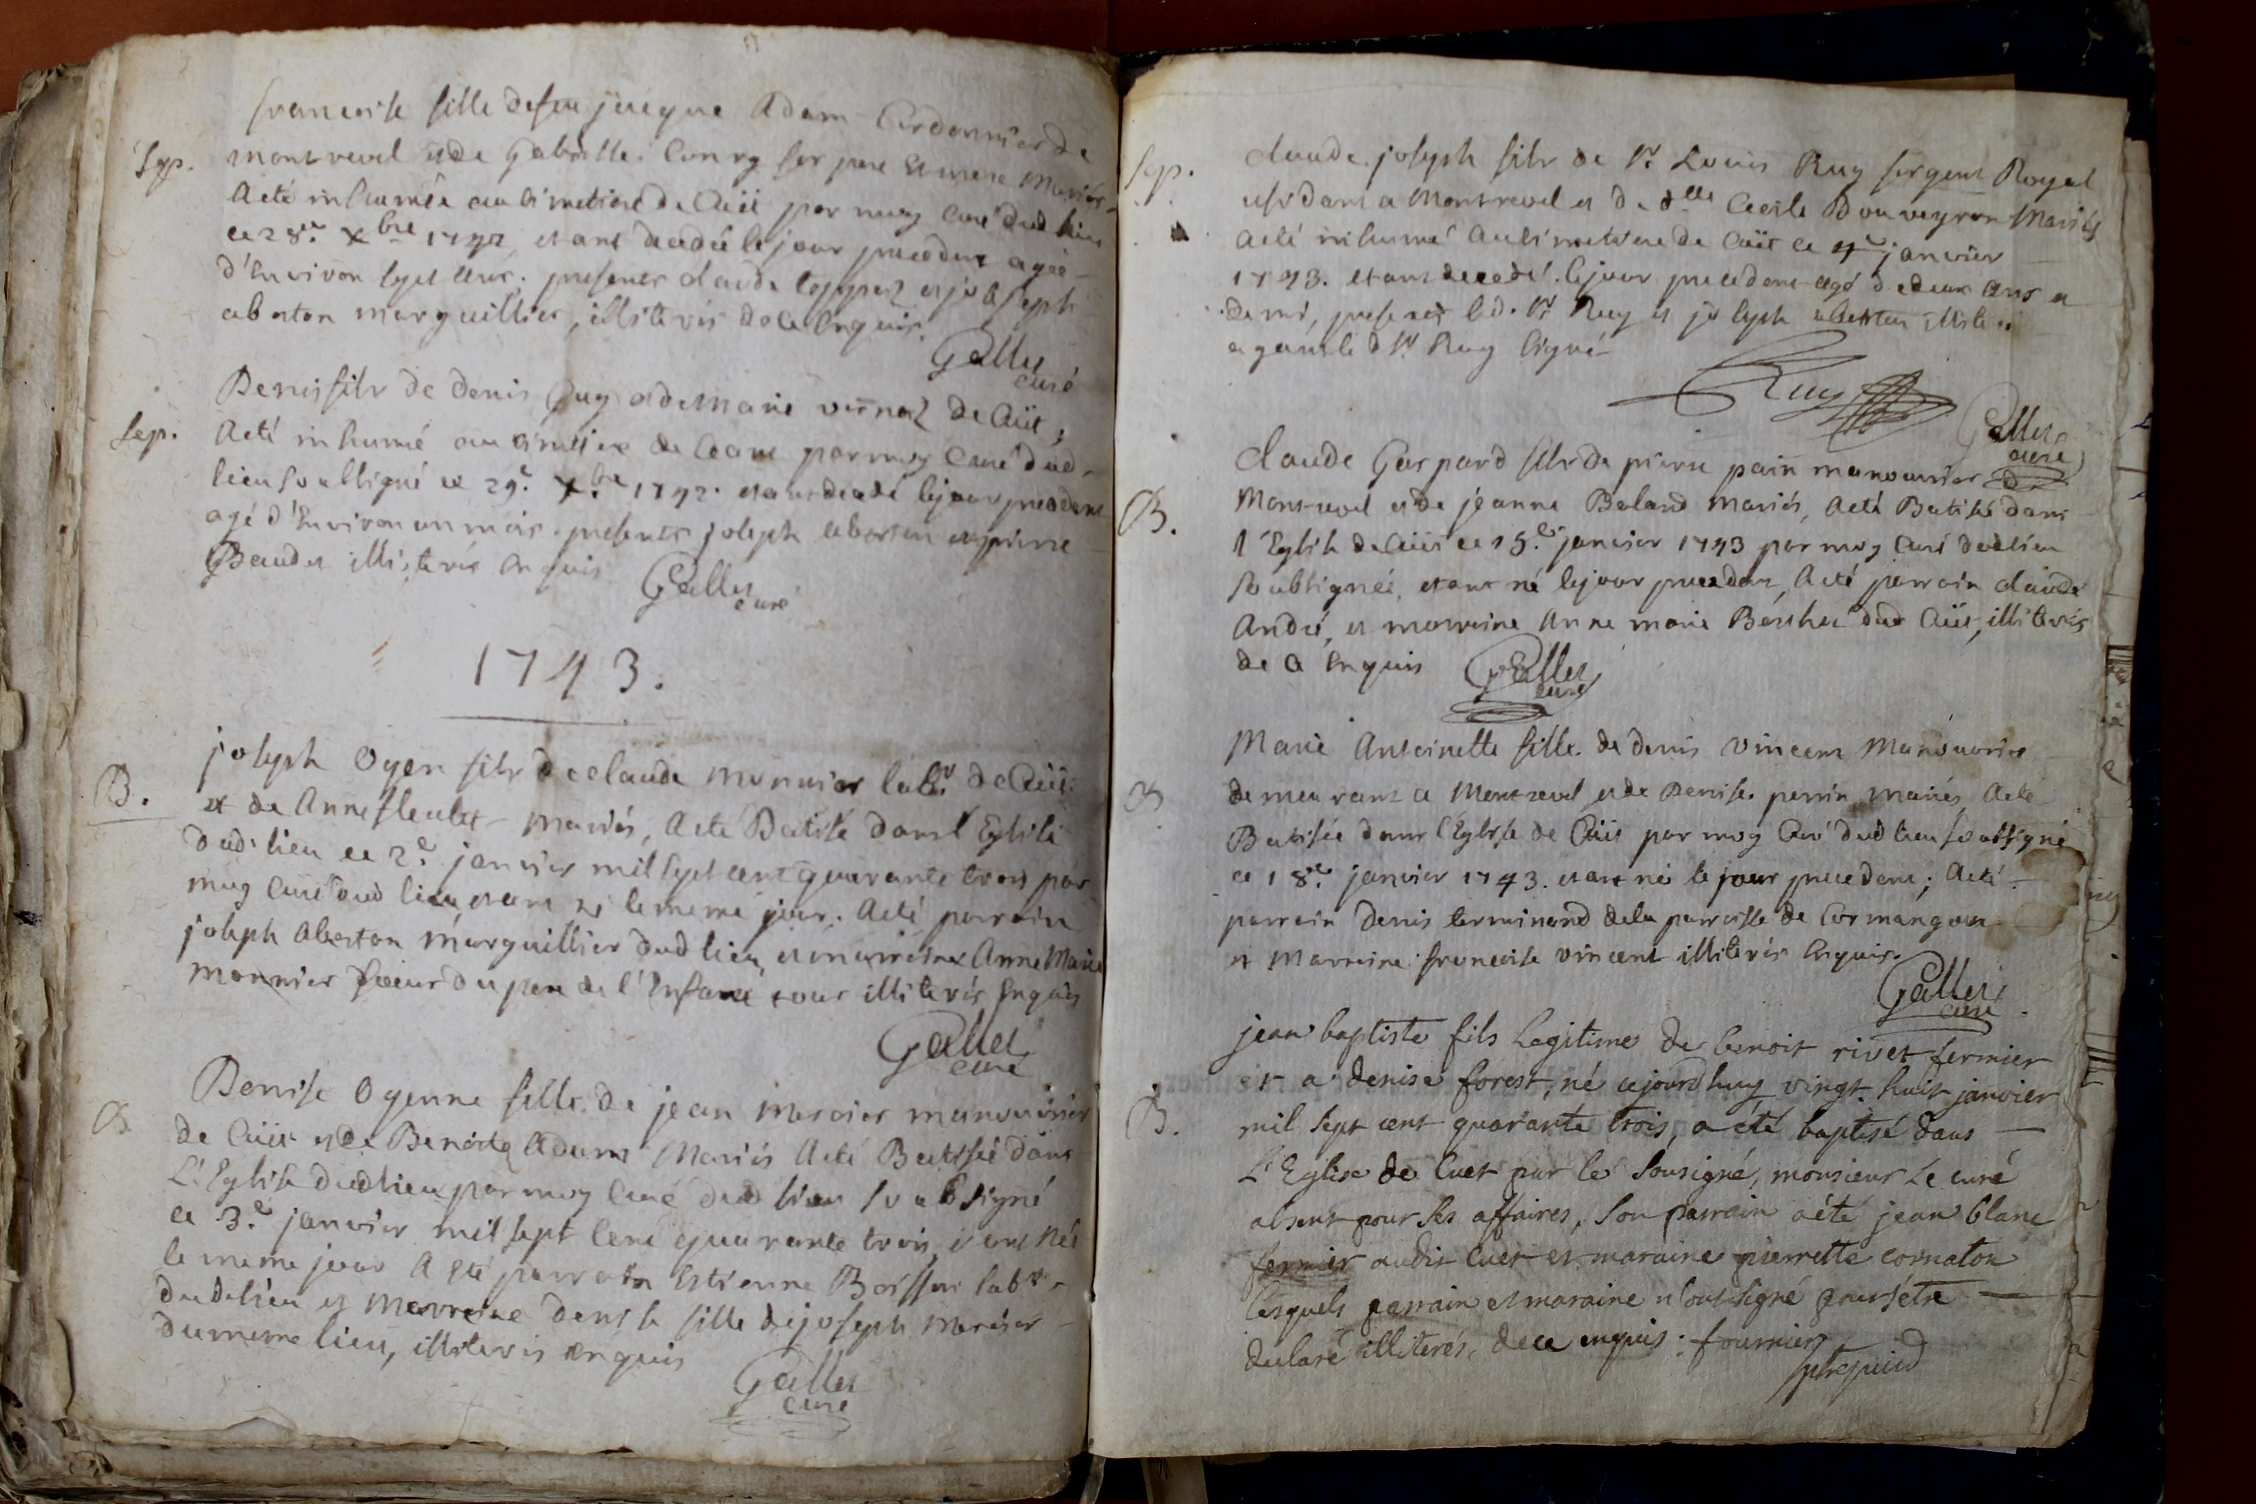 francoise fille de feu jacque Adam Cordonnier de
Sep. montrevel et de Gabrielle Conry ses pere et mere mariés
a eté inhumée au cimetiere de Cüit par moy curé dud lieu
ce 28e xbre 1742 etant decedée le jour precedent agée
d'environ sept ans. presents claude et joseph
aberton marguillier, illiterés de ce enquis.
Gallet
curé
Denis fils de denis Guy et de Marie vernoz de Cüit,
Sep. a eté inhumé au cimetiere de Ceans par moy Curé dud
lieu soussigné ce 29e xbre 1742. etant decedé le jour precedent
agé d'environ un mois. presents joseph aberton et pierre
Baudet illiterés enquis
Gallet
curé
1743.
joseph Oyen fils de claude monnier labr de Cüit
B. et de Anne fleulet mariés, a eté Batisé dans l'Eglise
dud. lieu ce 2e janvier mil sept cent quarante trois par
moy Curé dud lieu, etant né le meme jour. a eté parrain
joseph Aberton marguillier dud lieu, et marraine Anne Marie
monnier soeur du pere de l'enfant tous illiterés enquis
Gallet
curé
Denise Oyenne fille de jean mercier manouvrier
B de Cüit et de Benoite Adam Mariés a eté Batisée dans
L'Eglise dud lieu par moy Curé dud lieu soubsigné
ce 3e janvier mil sept cent quarante trois, etant née
le meme jour a eté parrain Estienne Boisson labr
dud lieu et marraine Denise fille de joseph mercier
du meme lieu, illiterés enquis
Gallet
curé
Sep. claude joseph fils de Sr Louis Ruy sergent Royal
residant a Montrevel et de dlle Cecile Bouveyron Mariés
a eté inhumé au cimetiere de Cüit ce 4e janvier
1743. etant decedé le jour precedent agé de deux ans et
demi, presents led. Sr Ruy et joseph aberton illiteré
ayant led Sr Ruy signé
Ruy
Gallet
curé
claude Gaspard fils de pierre pain manouvrier de
B. Montrevel et de jeanne Beland mariés, a eté Batisé dans
l'Eglise de Cüit ce 15e janvier 1743 par moy Curé dud lieu
soubsigné, etant né le jour precedent, a eté parrain claude
André, et marraine Anne marie Berthet dud Cüit, illiterés
de ce enquis
Gallet
curé
Marie Antoinette fille de denis vincent Manouvrier
B demeurant a Montrevel et de Denise perrin mariés a eté
Batisée dans l'Eglise de Cüit par moy Curé dud lieu soussigné
ce 18e janvier 1743. etant née le jour precedent; a eté
parrain Denis terminand de la parroisse de Cormangoux
et Marraine francoise vincent illiterés enquis.
Gallet
curé
jean baptiste fils legitime de benoit rivet fermier
et a denise forest, né cejourdhuy vingt huit janvier
B. mil sept cent quarante trois, a été baptisé dans
L'Eglise de Cuet par le sousigné, monsieur Le curé
absent pour ses affaires, son parrain a été jean blanc
fermier audit Cuet et maraine pierrette cornaton
lesquels parrain et maraine n'ont signé pour s'etre
declaré illiterés, de ce enquis: fournier